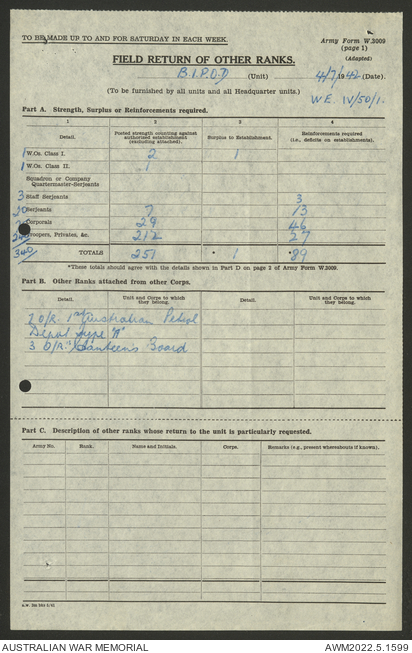 TO BE MADE UP TO AND FOR SATURDAY IN EACH WEEK.
Army Form W.3009
(page 1)
(Adapted)
FIELD RETURN OF OTHER RANKS.
B.I.P.O.D (Unit) 4/7/1942 (Date).
(To be furnished by all units and all Headquarter units.)
WE. IV/50/1.
Part A. Strength, Surplus or Reinforcements required.
1 2 3 4
Detail. Posted strength counting against authorised establishment (excluding attached). Surplus to Establishment. Reinforcements required (i.e., deficits on establishments).
1 W.Os. Class I. 2 1
1 W.Os. Class II. 1
Squadron or Company
Quartermaster-Serjeants
3 Staff Serjeants 3
20 Serjeants 7 13
Corporals 29 46
Troopers, Privates, &c. 212 27
340 TOTALS 251 * 1 * 89
*These totals should agree with the details shown in Part D on page 2 of Army Form W.3009.
Part B. Other Ranks attached from other Corps.
Detail. Unit and Corps to which they belong. Detail. Unit and Corps to which they belong.
2 O/R. 1st Australian Petrol
Depot Type "A"
3 O/R's Canteens Board
Part C. Description of other ranks whose return to the unit is particularly requested.
Army No. Rank. Name and Initials. Corps. Remarks (e.g., present whereabouts if known).
AUSTRALIAN WAR MEMORIAL
AWM2022.5.1599